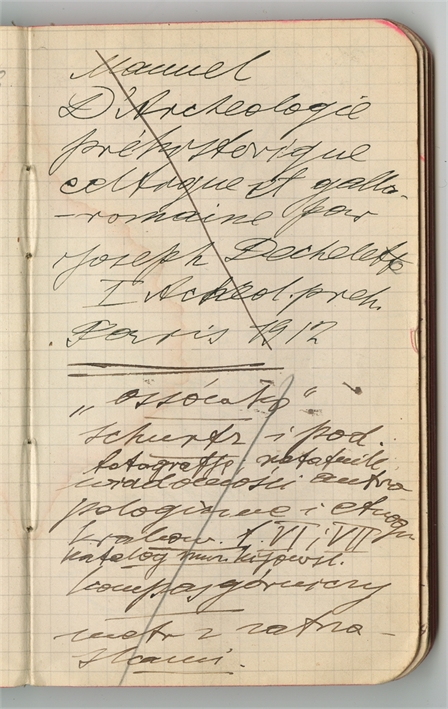 Manuel
D'Archeologie
préhystorique
celtique et gallo-
-romaine par
Joseph Dechelette
I Archeol. preh.
Paris 1912
schurtz i pod.
fotografje, notatnik,
wiadomości antro
pologiczne i etnogr.
krakow. t. VI i VII
katalog muz. kijowsk.
kompas górniczy
metr z zatrza-
skami.